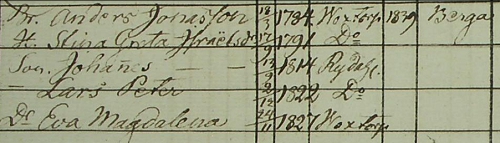 Br. Anders Jonasson 18/2 1784 Woxtorp 1839 Berga
H. Stina Greta Israelsdr 17/9 1791 Do
Son Johañes — 13/9 1814 Rydah.
— Lars Peter 2/12 1822 Do
Dr Eva Magdalena 24/11 1827 Woxtorp